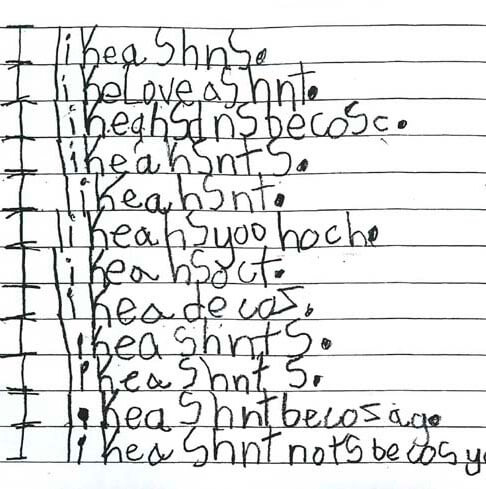 i hea ShnS.
i heLove aShnt.
iheahSdnSbecoSc.
iheahSntS.
iheahSnt.
iheahSyoo hoch
i heahSoct.
i hea de cos.
ihea ShntS.
ihea Shnt S.
i hea Shntbecos ago
i hea Shnt notS becos y